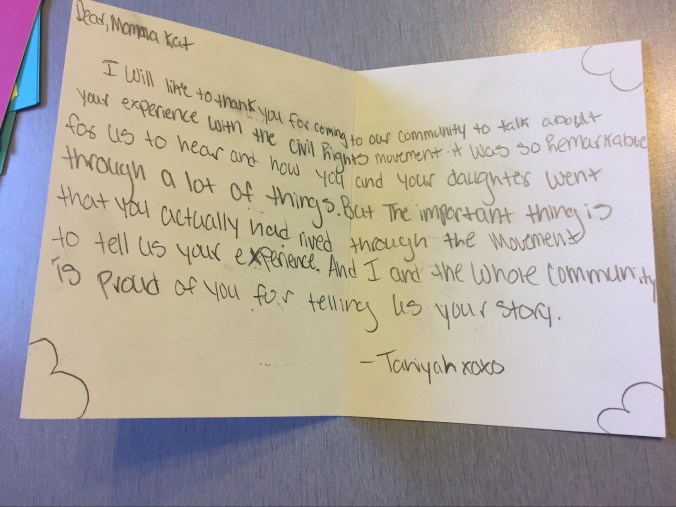 Dear, Momma Kat
I Will like to thank you for coming to our community to talk about
your experience with the Civil Rights movement it was so Remarkable
for us to hear and how you and your daughter went
through a lot of things. But The important thing is
that you actually had rived through the Movement
to tell us your experience. And I and the whole community
is Proud of you for telling us your story.
- Taniyah xoxo